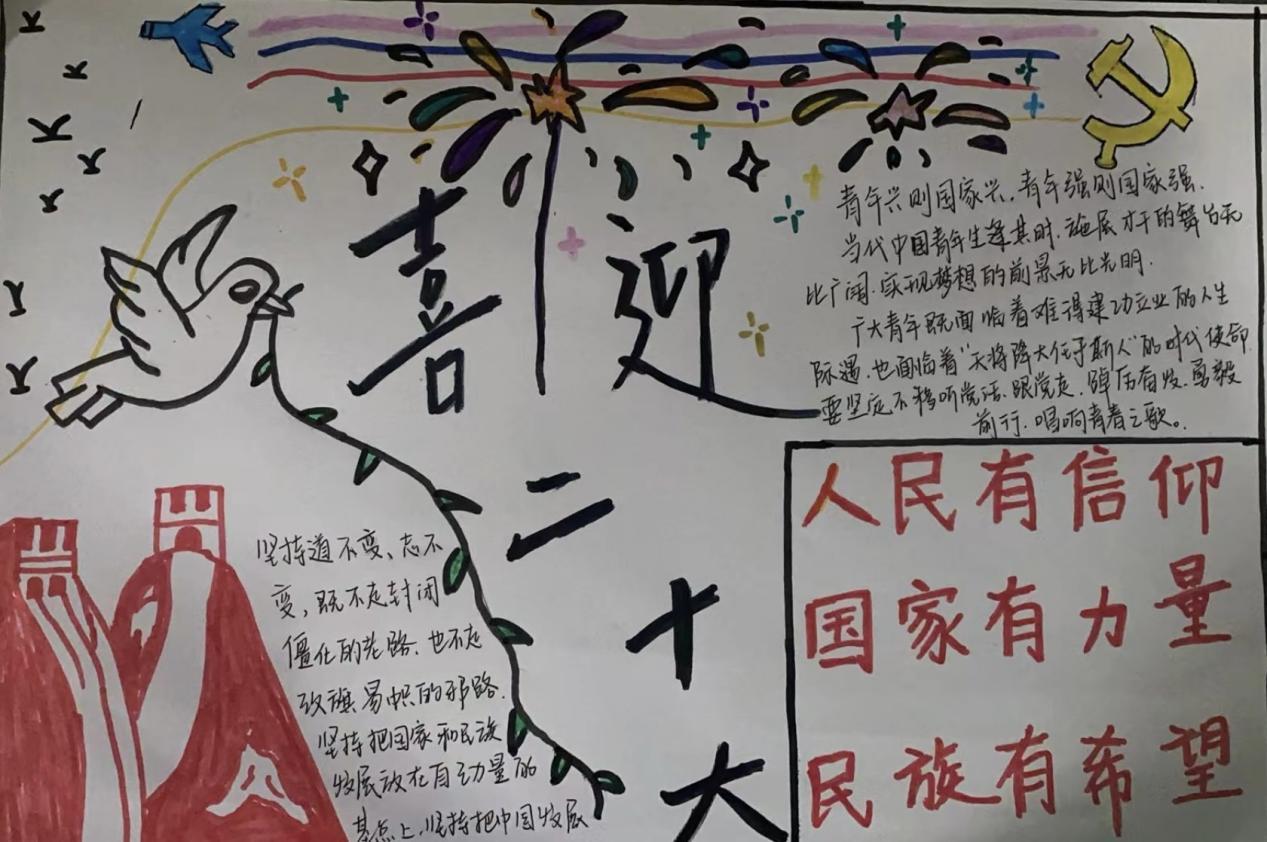 喜迎
二十大
青年兴则国家兴,青年强则国家强.
当代中国青年生逢其时.施展才干的舞台无
比广阔.实现梦想的前景无比光明.
广大青年既面临着难得建功立业的人生
际遇.也面临着“天将降大任于斯人”的时代使命.
要坚定不移听党话.跟党走.踔厉奋发.勇毅
前行.唱响青春之歌。
人民有信仰
国家有力量
民族有希望
坚持道不变、志不
变,既不走封闭
僵化的老路.也不走
改旗易帜的邪路.
坚持把国家和民族
发展放在自己力量的
基点上.坚持把中国发展